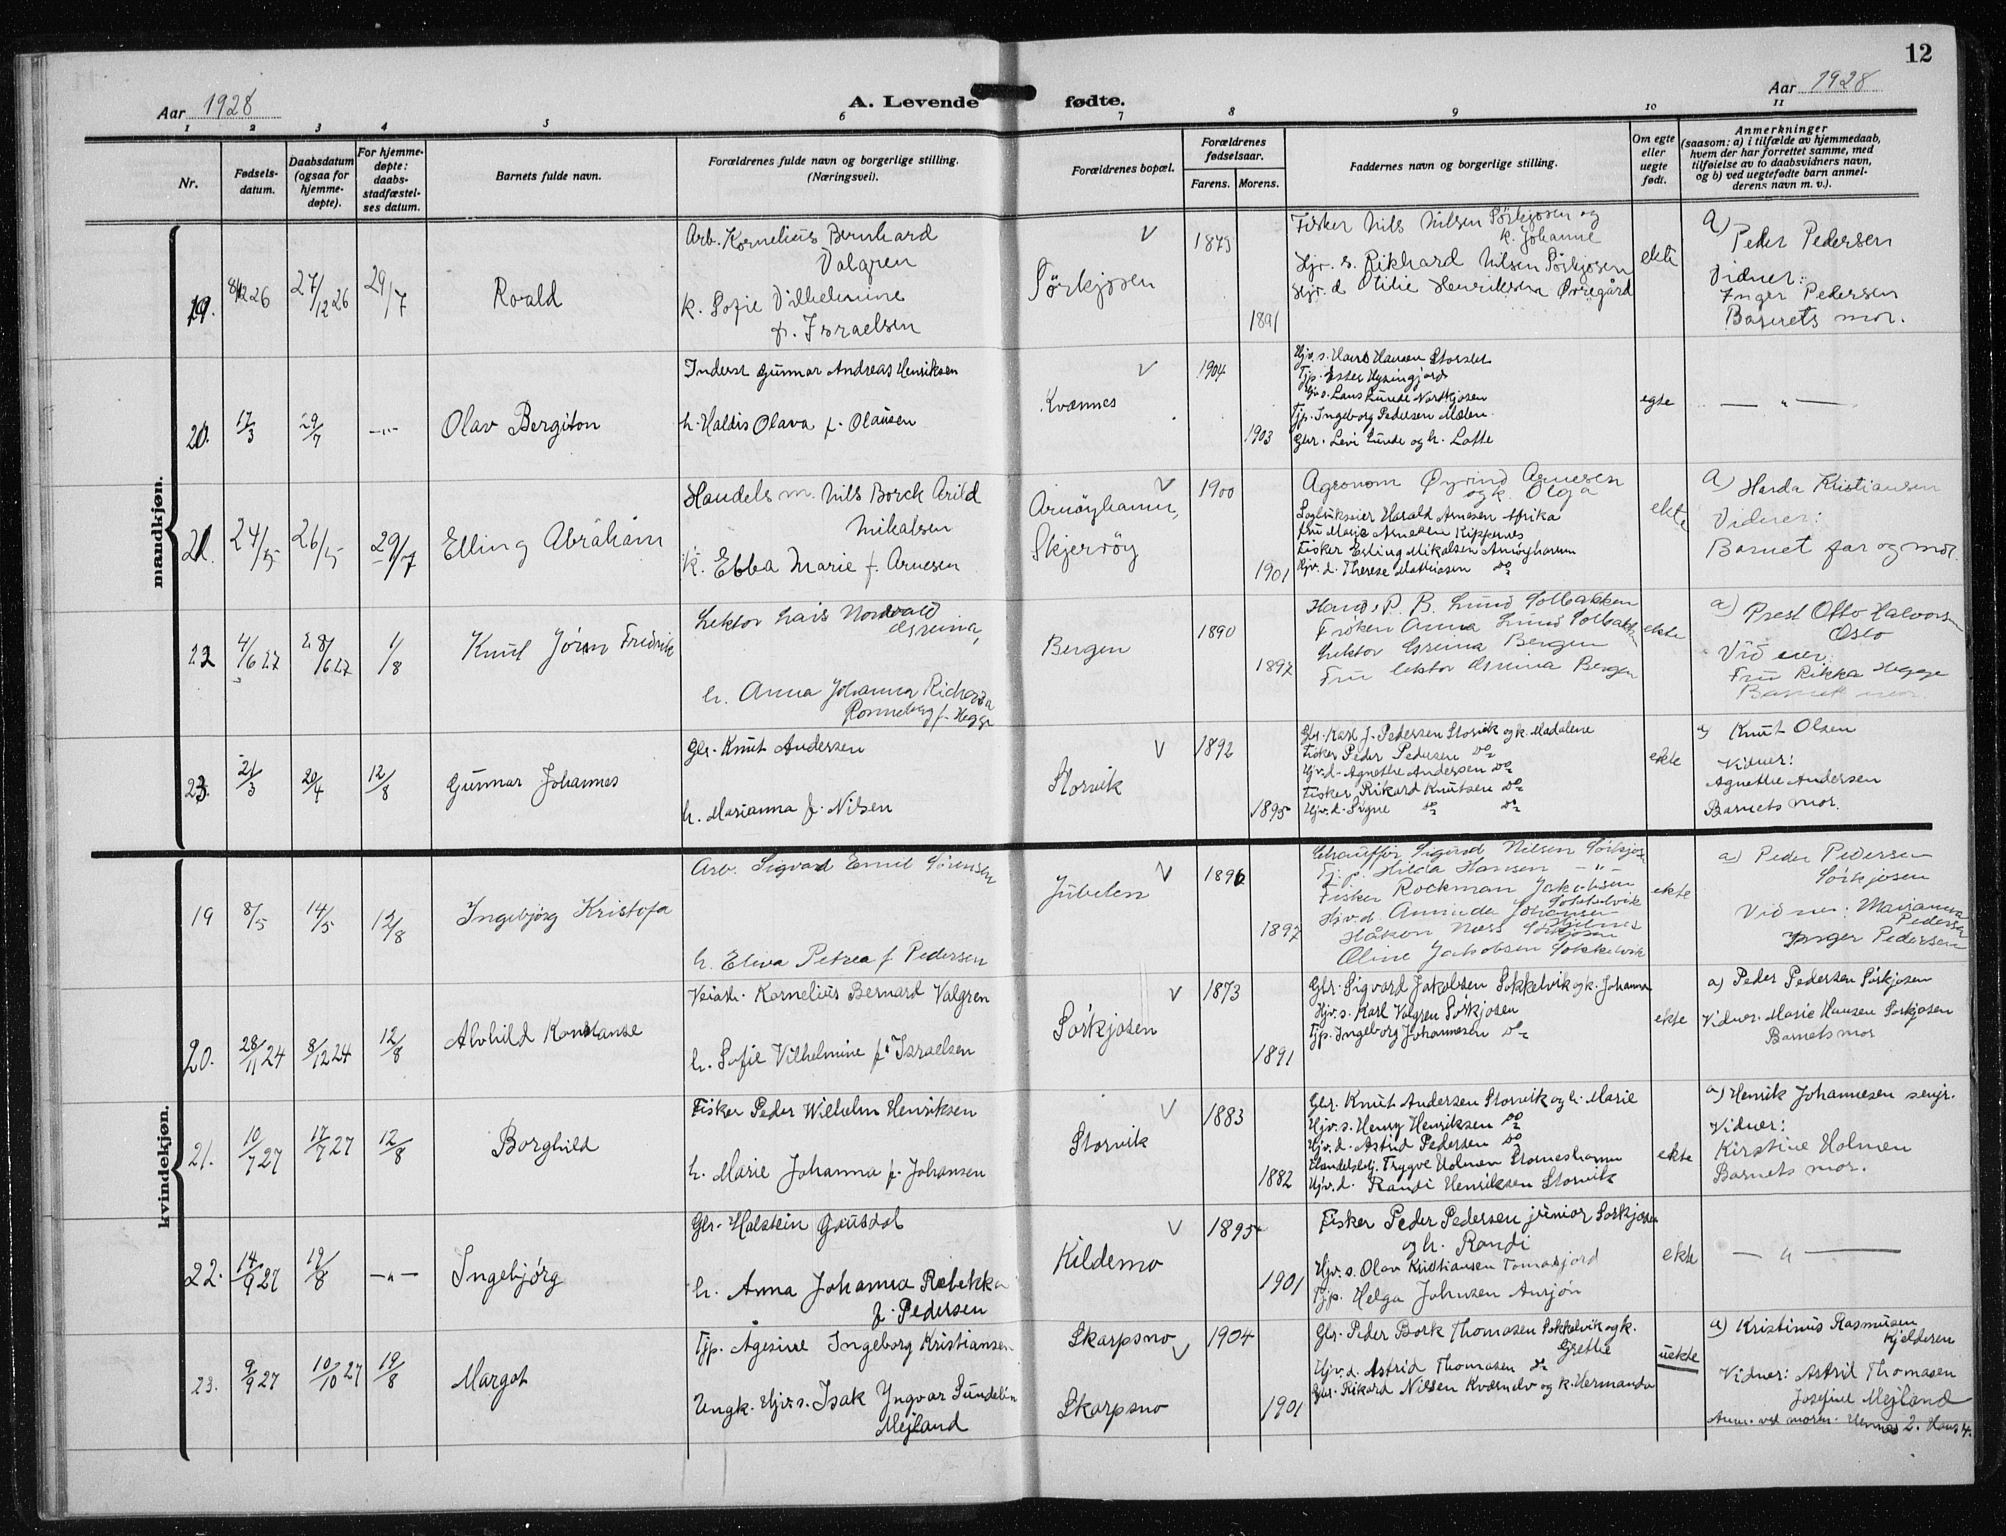 12
Aar 1928
A. Levende fødte.
Aar 1928
1 2 3 4 5 6 7 8 9 10 11
Nr.
Fødsels-
datum.
Daabsdatum
(ogsaa for
hjemme-
døpte).
For hjemme-
døpte:
daabs-
stadfæstel-
ses datum.
Barnets fulde navn.
Forældrenes fulde navn og borgerlige stilling.
(Næringsvei).
Forældrenes bopæl.
Forældrenes
fødselsaar.
Farens. Morens.
Faddernes navn og borgerlige stilling.
Om egte
eller
uegte
født.
Anmerkninger
(saasom: a) i tilfælde av hjemmedaab,
hvem der har forrettet samme, med
tilføielse av to daabsvidners navn,
og b) ved uegtefødte barn anmel-
derens navn m. v.).
mandkjøn.
19. 8/12 26 27/12 26 29/7 Roald
Arb. Kornelius Bernhard
Valgren
k. Sofie Vilhelmine
f. Israelsen
Sørkjosen
1873
1891
Fisker Nils Nilsen Sørkjosen og
k. Johanne
Hjv. s. Rikhard Nilsen Sørkjosen
Hjv. d. Otilie Henriksen Øvregård
ekte
a) Peder Pedersen
Vidner:
Inger Pedersen
Barnets mor.
20. 17/3 29/7 — " — Olav Bergiton
Inderst Gunnar Andreas Henriksen
h. Haldis Olava f. Olaisen
Kvænnes
1904
1903
Hjv. s. Hans Hansen Storslet
Tjp. Ester Hysingjord
Hjv. s. Lars Lunde Nordkjosen
Tjp. Ingeborg Pedersen Mælen
Gbr. Levi Lunde og h. Lotte
egte
— " —
21. 24/5 26/5 29/7 Elling Abraham
Handels m. Nils Borck Arild
Mikalsen
k. Ebba Marie f. Arnesen
Arnøyhamn,
Skjervøy
1900
1901
Agronom Øyvind Arnesen
og k. Olga
Harald Arnesen Afrika
Fru Marie Arnesen Kippernes
Fisker Erling Mikalsen Arnøyhamn
Hjv. d. Therese Mathiasen do
ekte
a) Harda Kristiansen
Vidner:
Barnet far og mor.
22 4/6 27 28/6 27 1/8 Knut Jørn Fredrik
Lektor Lars Nordvald
Greina,
h. Anna Johanna Richarda
Ronneberg f. Hegge
Bergen
1890
1897
Hand. P. B. Lund Solbakken
Frøken Anna Lund Solbakk
Lektor Greina Bergen
Fru lektor Greina Bergen
ekte
a) Prest Otto Halvorsen
Oslo
Vidner
Fru Rikka Hegge
Barnets mor.
23. 21/3 20/4 12/8 Gunnar Johannes
Gbr. Knut Andersen
h. Marianna f. Nilsen
Storvik
1892
1895
Gbr. Karl J. Pedersen Storvik og k. Madalene
Fisker Peder Pedersen do
Hjv. d. Agnethe Andersen do
Fisker Rikard Knutsen do
Hjv. d. Signe do do
ekte
a) Knut Olsen
Vidner:
Agnethe Andersen
Barnets mor.
kvindekjøn.
19 8/5 14/5 12/8 Ingebjørg Kristofa
Arb. Sigvard Emil Sørensen
h. Eleva Petrea f. Pedersen
Jubelen
1896
1897
Chauffør Sigurd Nilsen Sørkjos.
Tj. p. Hilda Hansen — " —
Fisker Rockman Jakobsen
Sokkelvik
Hjv. d. Johansen
Håkon Næss Sørkjosen
Oline Jakobsen Sokkelvik
ekte
a) Peder Pedersen
Sørkjosen
Vidner: Marianna
Pedersen
Inger Pedersen
20. 28/11 24 8/12 24 12/8 Alvhild Konstanse
Veiarb. Kornelius Bernard Valgren
h. Sofie Vilhelmine f. Israelsen
Sørkjosen
1873
1891
Gbr. Sigvard Jakobsen Sokkelvik og k. Johanna
Hjv. s. Karl Valgren Sørkjosen
Tjp. Ingeborg Johannesen do
ekte
a) Peder Pedersen Sørkjosen
Vidner. Marie Hansen Sørkjosen
Barnets mor
21. 10/7 27 17/7 27 12/8 Borghild
Fisker Peder Wilhelm Henriksen
h. Marie Johanna f. Johansen
Storvik
1883
1882
Gbr. Knut Andersen Storvik og h. Marie
Hjv. s. Henry Henriksen do
Hjv. d. Astrid Pedersen do
Handelsbtj. Trygve Holmen Storneshamn
Hjv. d. Randi Henriksen Storvik
ekte
a) Henrik Johannesen senjr.
Vidner:
Kirstine Holmen
Barnets mor.
22. 14/9 27 19/8 — " — Ingebjørg
Gbr. Halstein Gausdal
h. Anna Johanna Rebekka
f. Pedersen
Kildemo
1895
1901
Fisker Peder Pedersen junior Sørkjosen
og h. Randi
Hjv. s. Olav Kristiansen Tomasjord
Tjp. Helga Johnsen Aursjøn
ekte
— " —
23. 9/9 27 10/10 27 19/8 Margot
Tjp. Agesine Ingeborg Kristiansen
Ungk. Hjv. s. Isak Yngvar Sundelin
Mejland
Skarpsno
Skarpsno
1904
1901
Gbr. Peder Bork Thomasen Sokkelvik og k.
Grethe
Hjv. d. Astrid Thomasen do
Gbr. Rikard Nilsen Kværnelv og k. Hermanda
uekte
a) Kristinus Rasmusen
Kjelderen
Vidner: Astrid Thomasen
Josefine Mejland
Anm. ved moren.